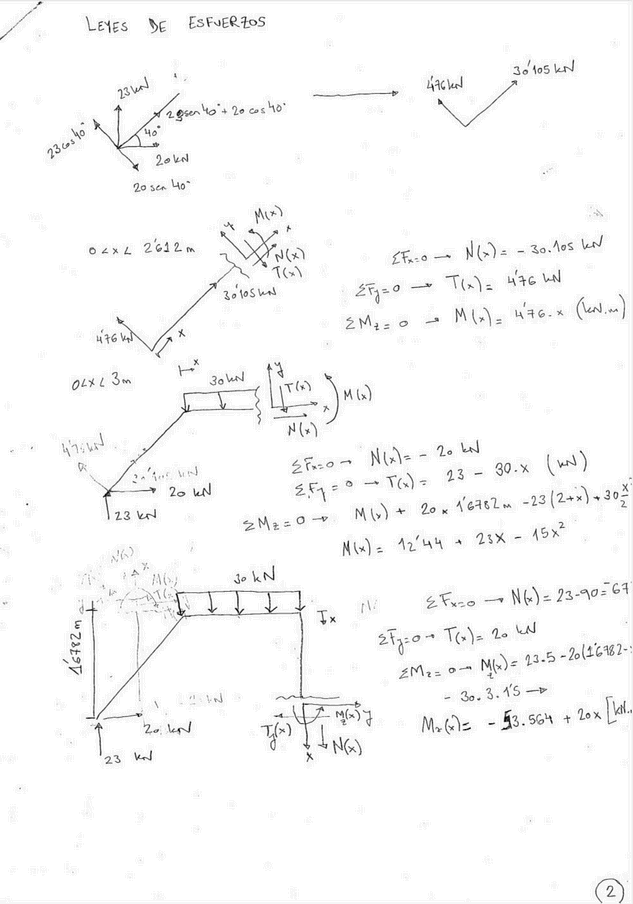 LEYES DE ESFUERZOS
23 kN
23 cos 40°
sen 40° + 20 cos 40°
40°
20 kN
20 sen 40°
4'76 kN
30'105 kN
0 < x < 2'612 m
y
M(x)
x
N(x)
T(x)
30'105 kN
4'76 kN
x
ΣFx=0 → N(x) = -30.105 kN
ΣFy=0 → T(x) = 4'76 kN
ΣMz=0 → M(x) = 4'76·x (kN.m)
0<x<3m
x
30 kN
y
T(x)
M(x)
x
N(x)
20 kN
23 kN
ΣFx=0 → N(x) = -20 kN
ΣFy=0 → T(x) = 23 - 30·x (kN)
ΣMz=0 → M(x) + 20 x 1'6782 m - 23(2+x) + 30 x
2
M(x) = 12'44 + 23x - 15x²
N(x)
M(x)
30 kN
x
1'6782 m
20 kN
23 kN
Ty(x)
Mz(x)
y
x
N(x)
ΣFx=0 → N(x) = 23-90=67
ΣFy=0 → T(x) = 20 kN
ΣMz=0 → Mz(x) = 23.5-20(1'6782-
- 30.3.1'5 →
Mz(x) = -53.564 + 20x [kN.
2